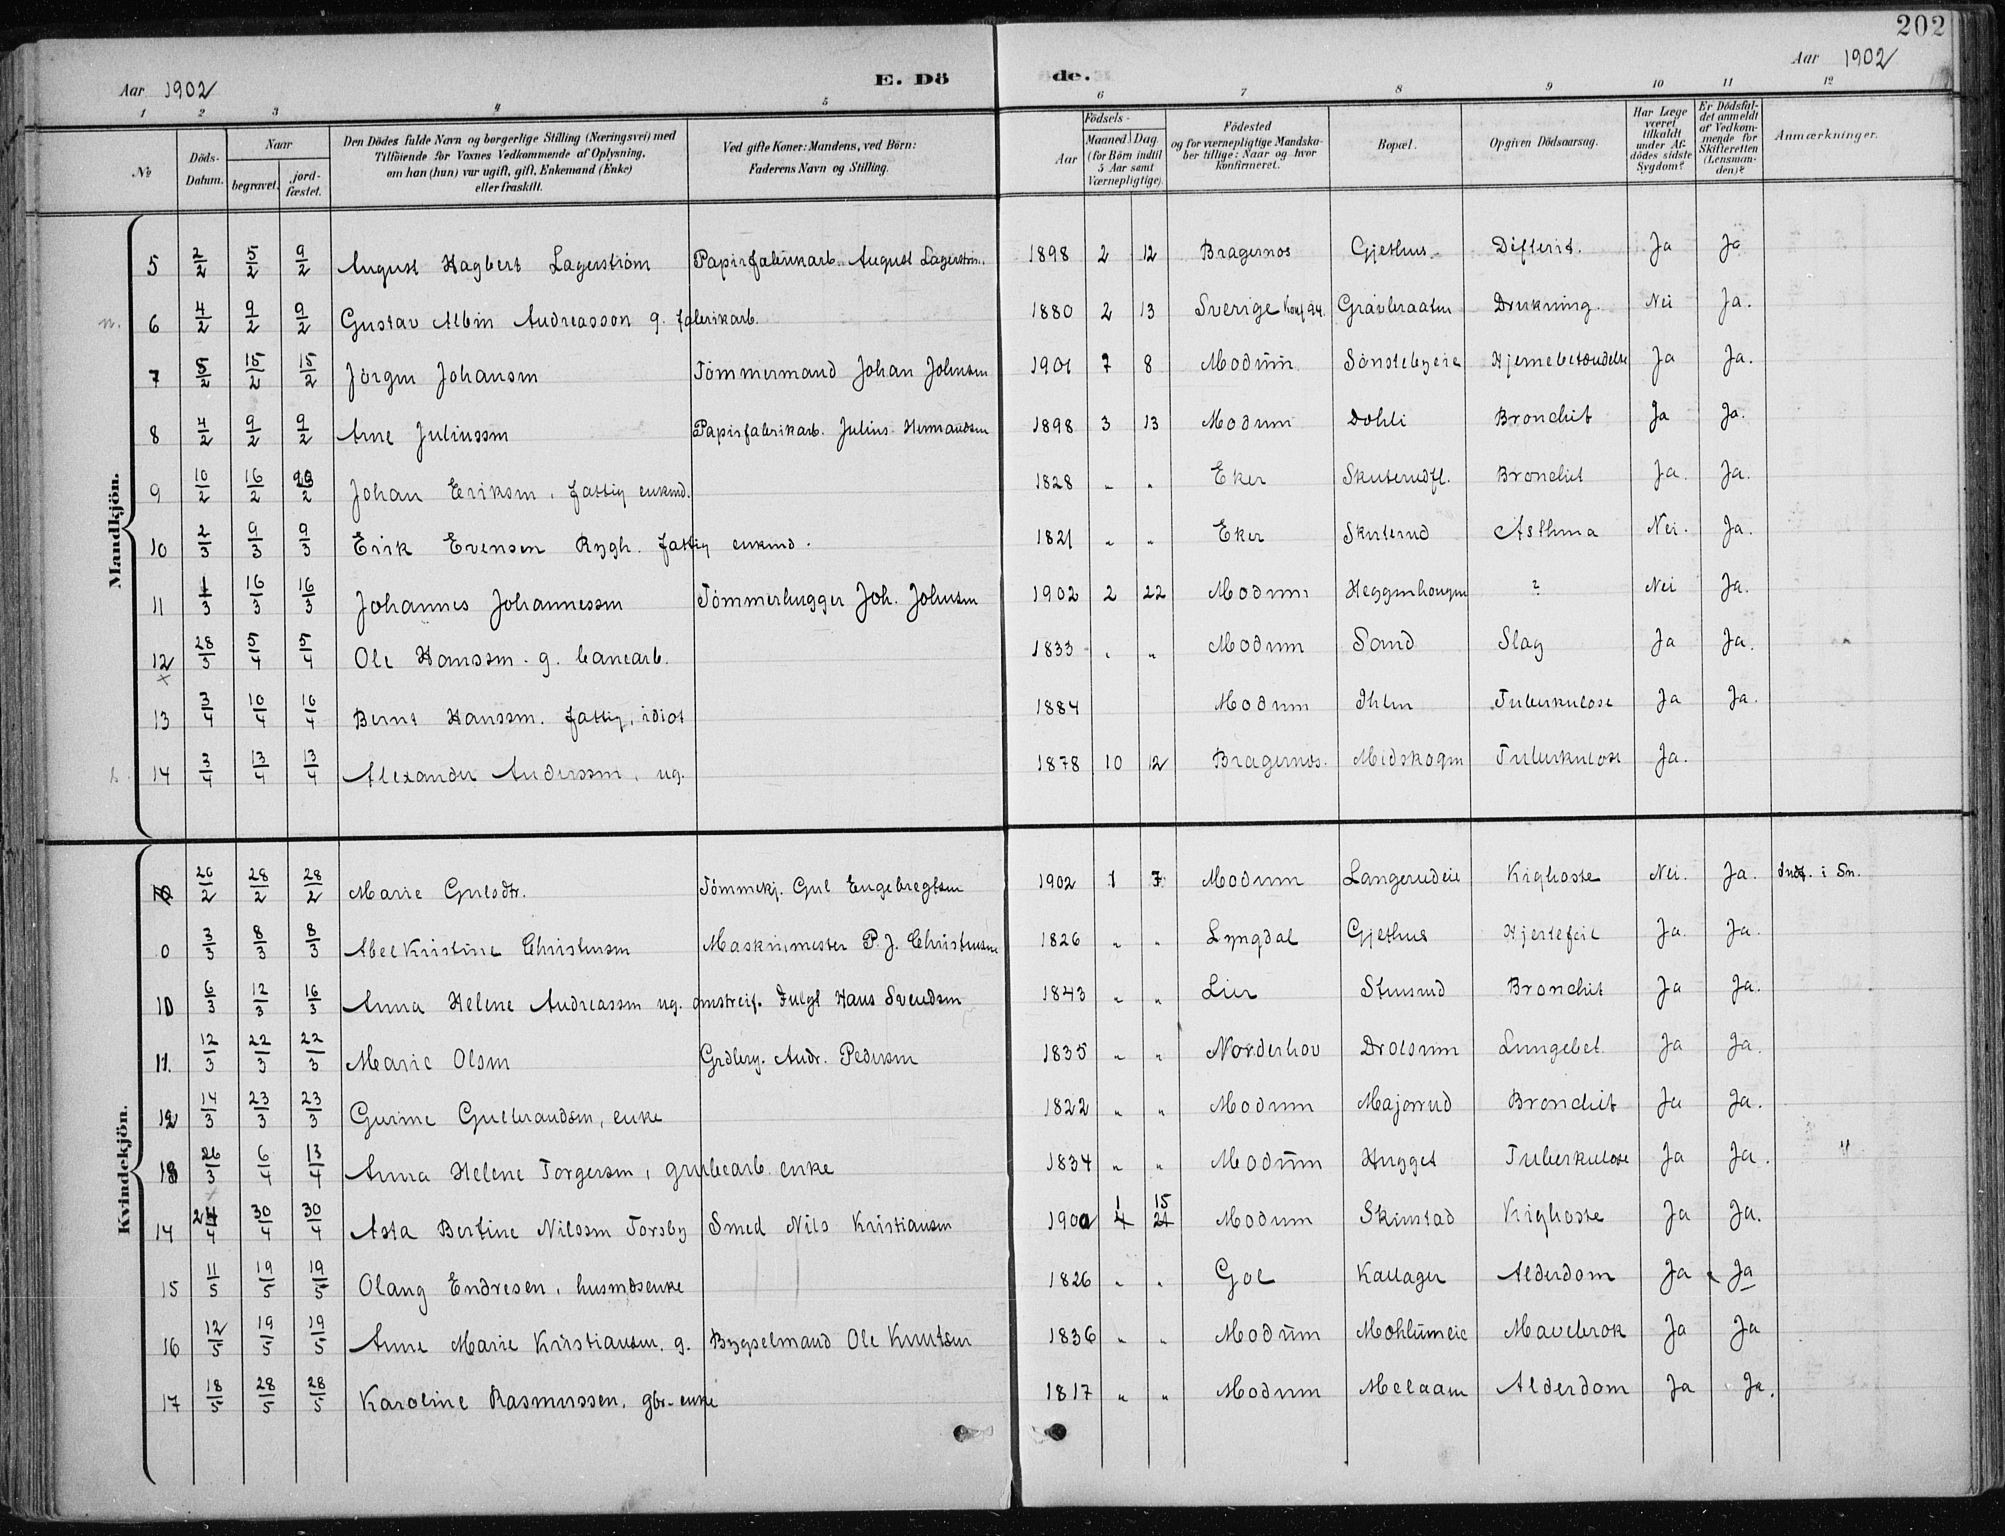 202
Aar 1902
E. Dö
de.
Aar 1902
1 2 3 4 5 6 7 8 9 10 11 12
No
Döds-Datum.
Naar
begravet.
jord-fæstet.
Den Dödes fulde Navn og borgerlige Stilling (Næringsvei) med
Tilföiende for Voxnes Vedkommende af Oplysning,
om han (hun) var ugift, gift, Enkemand (Enke)
eller fraskilt.
Ved gifte Koner: Mandens, ved Börn:
Faderens Navn og Stilling.
Födsels-
Aar
Maaned Dag
(for Börn indtil
5 Aar samt
Værnepligtige).
Födested
og for værnepligtige Mandska-
ber tillige: Naar og hvor
konfirmeret.
Bopæl.
Opgiven Dödsaarsag.
Har Læge
været
tilkaldt
under Af-
dödes sidste
Sygdom?
Er Dödsfal-
det anmeldt
af Vedkom-
mende for
Skifteretten
(Lensman-
den)?
Anmærkninger.
Mandkjön.
5 2/2 5/2 9/2 August Hagbert Lagerström Papirfabrikarb. August Lagerström. 1898 2 12 Bragernes Gjethus. Difterit. Ja Ja
6 4/2 9/2 9/2 Gustav Albin Andreasson g. fabrikarb. 1880 2 13 Sverige konf 94. Gravbraaten Drukning. Nei Ja.
7 5/2 15/2 15/2 Jörgen Johansen Tömmermand Johan Johnsen 1901 7 8 Modum Sönstebyeie Hjernebetændelse Ja Ja.
8 4/2 9/2 9/2 Arne Juliussen Papirfabrikarb. Julius Hermandsen 1898 3 13 Modum Dohli Bronchit Ja Ja.
9 10/2 16/2 Johan Eriksen, fattig enkmd. 1828 " " Eker Skuterudfl. Bronchit Ja. Ja.
10 2/3 9/3 9/3 Erik Evensen Rygh. fattig enkmd. 1821 " " Eker Skuterud Asthma Nei. Ja.
11 1/3 16/3 16/3 Johannes Johannessen Tömmerhugger Joh. Johnsen 1902 2 22 Modum Heggenhougen ? Nei Ja.
12 28/3 5/4 5/4 Ole Hanssen. g. banearb. 1833 " " Modum Sand Slag Ja Ja. "
x
13 3/4 10/4 10/4 Bernt Hanssen. fattig, idiot 1884 Modum Ihlen Tuberkulose Ja Ja.
14 3/4 13/4 13/4 Alexander Anderssen, ug. 1878 10 12 Bragernes. Midskogen Tuberkulose Ja.
Kvindekjön.
26/2 28/2 28/2 Marie Gulsdtr. Tömmekj. Gul Engebregtsen 1902 1 7 Modum Langerudeie Kighoste Nei. Ja. Indf. i Sn.
0 3/3 8/3 8/3 Abel Kristine Christensen Maskinmester P. J. Christensen 1826 " " Lyngdal Gjethus Hjertefeil Ja. Ja.
10 6/3 12/3 16/3 Anna Helene Andreassen ug. omstreif. Fulgt Hans Svendsen 1843 " " Lier Stensrud Bronchit Ja Ja.
11. 12/3 22/3 22/3 Marie Olsen Grdbrg. Andr. Pedersen 1835 " " Norderhov Drolsum Lungebet. Ja Ja.
12 14/3 23/3 23/3 Gurine Gulbrandsen, enke 1822 " " Modum Majorrud Bronchit Ja Ja.
13 26/3 6/4 13/4 Anna Helene Torgersen, grubearb. enke 1834 " " Modum Hugget Tuberkulose Ja Ja. "
14 24/4 30/4 30/4 Asta Bertine Nilssen Torsby Smed Nils Kristiansen 1900 1 15 4 24 Modum Skinstad Kighoste Ja Ja.
15 11/5 19/5 19/5 Olaug Endresen, husmdsenke 1826 " " Gol Kallager Alderdom Ja Ja
16 12/5 19/5 19/5 Anne Marie Kristiansen. g. Bygselmand Ole Knutsen 1836 " " Modum Mohlumeie Mavebrok Ja Ja
17 18/5 28/5 28/5 Karoline Rasmussen, gbr-enke 1817 " " Modum Melaaen Alderdom Ja Ja.